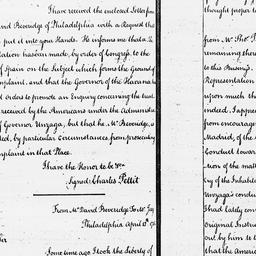 I have received the enclosed Letter from
and Beveridge of Philadelphia with a Request tha
put it into your Hands. He informs me that a
tation has been made, by order of Congress to the
of Spain on the Subject which forms the Ground of
mplaint, and that the Governor of the Havanna ha
d orders to promote an Enquiry concerning the treat
received by the Americans under the Administra
of Governor Unzaga, but that he Mr. Beveridge, is
ted, by particular Circumstances from prosecuting
mplaint in that Place.
I have the Honor to be &c.
Signed: Charles Pettit
From Mr. David Beveridge to Mr. Jay
Philadelphia April 15th 17
Some time ago I took the Liberty of
thought proper to
from Mr. Thos.
remaining there
to this Prising.
Representation
upon much th
indeed, I appre
from encourage
Madrid, of the
Conduct towar
tion of the mat
ty of the Inhabita
Unzaga's conduc
I had lately con
Original Instruc
out by him to t
that the Americ